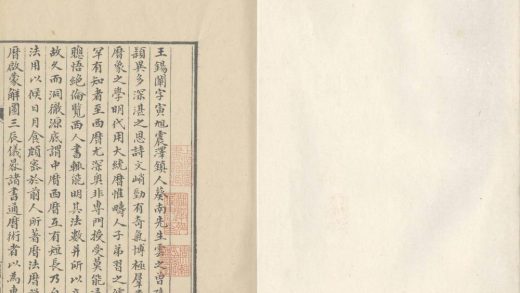 王錫闡字寅旭震澤鎮人葵南先生雲之曾孫
穎異多深湛之思詩文峭勁有奇氣博極羣
曆象之學明代用大統曆惟疇人子弟習之儒
罕有知者至西曆尤深奥非專門授受莫能
聰悟絶倫覧西人書輒能明其法數并所以立
故久而洞徹源底謂中曆西曆互有短長乃自
法用以候日月食頗密於前人所著曆法曆説
曆啟蒙解圖三辰儀晷諸書通曆術者以為東